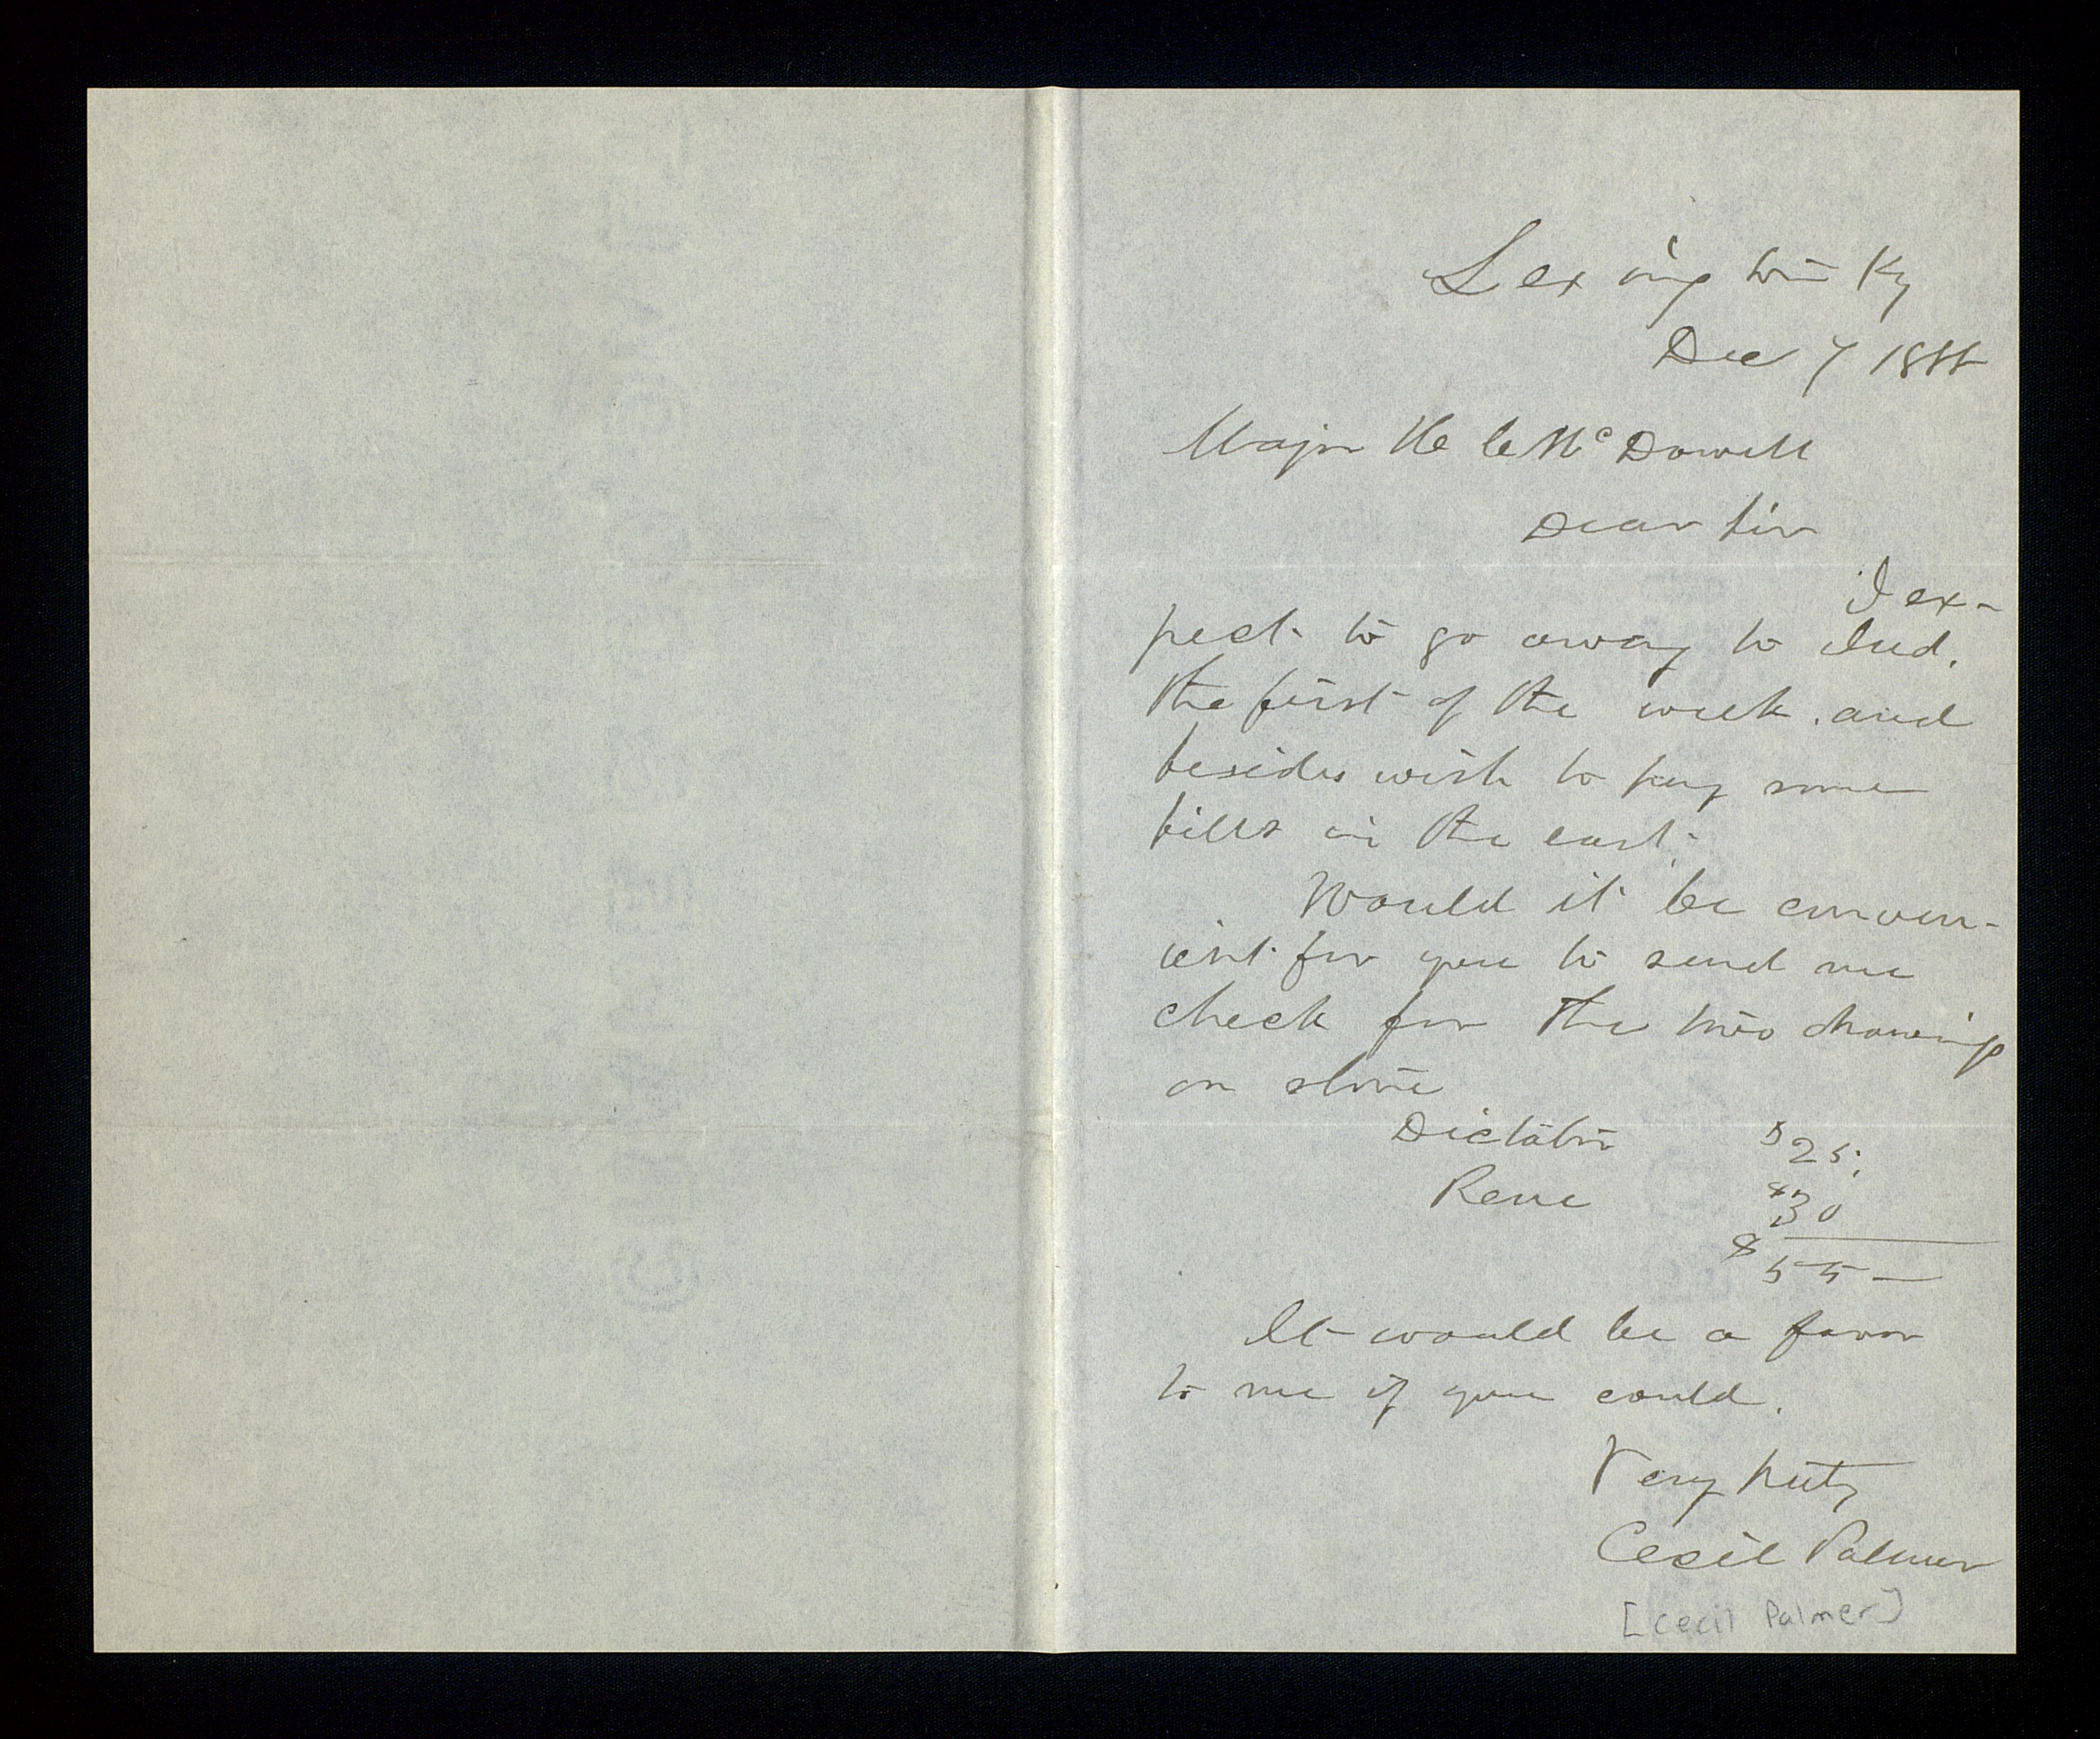 Lexington Ky
Dec 7 1888
Major H C McDowell
Dear Sir
I ex-
pect to go away to Ind.
the first of the week, and
besides wish to pay some
bills in the east.
Would it be conven-
ient for you to send me
check for the two drawings
on stone
Dictator $25.
Rene $30
$55—
It would be a favor
to me if you could.
Very truly
Cecil Palmer
[Cecil Palmer]